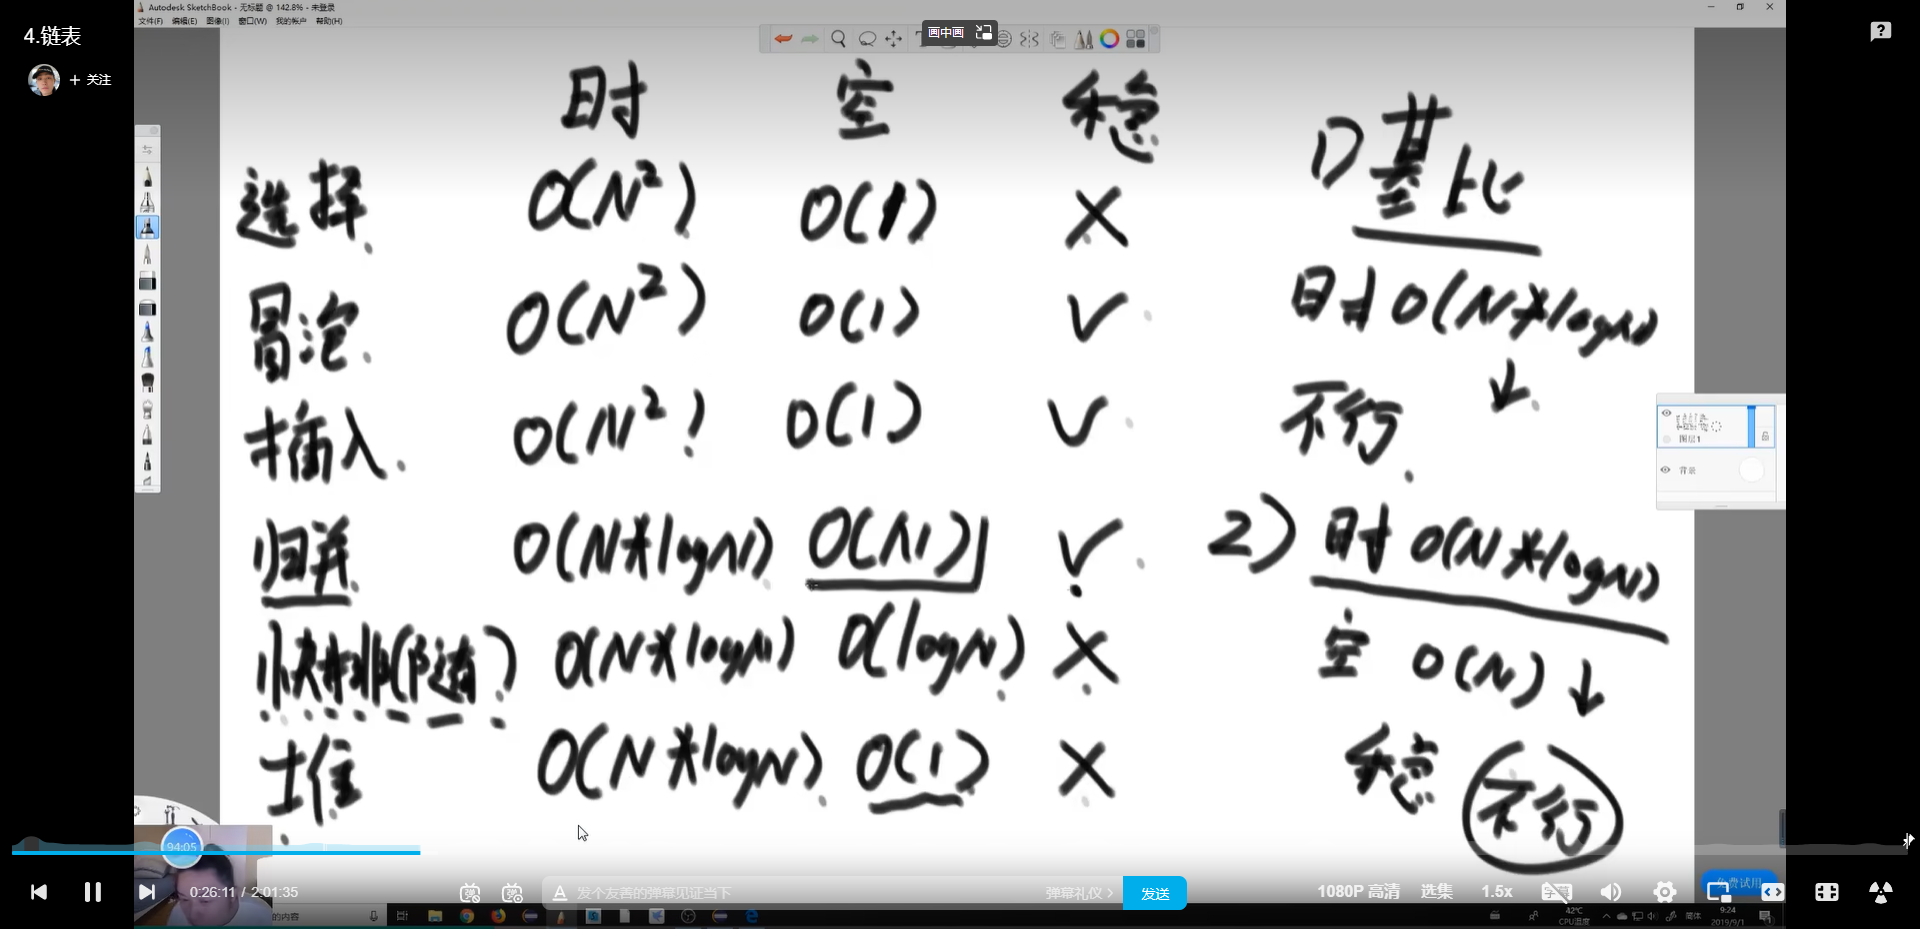 Autodesk SketchBook - 无标题 @ 142.8% - 未登录
文件(F) 编辑(E) 图像(I) 窗口(W) 我的帐户 帮助(H)
4.链表
画中画
+ 关注
时 空 稳
选择 O(N²) O(1) X
冒泡 O(N²) O(1) √
插入 O(N²) O(1) √
归并 O(N*logN) O(N) √
快排(随) O(N*logN) O(logN) X
堆 O(N*logN) O(1) X
1) 基比
时 O(N*logN) ↓
不行
2) 时 O(N*logN)
空 O(N) ↓
稳 不行
图层1
背景
94:05
0:26:11 / 2:01:35
发个友善的弹幕见证当下
弹幕礼仪 >
发送
1080P 高清
选集
1.5x
免费试用
的内容
42°C
CPU温度
简体
9:24
2019/9/1